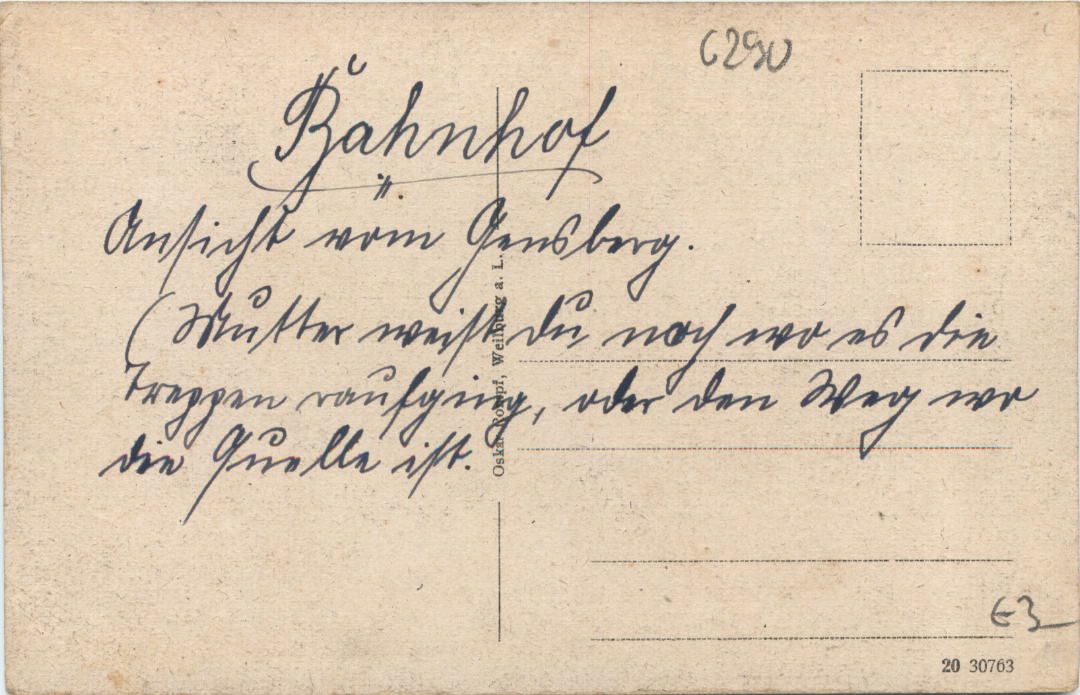 6290
Bahnhof
Ansicht vom Gensberg.
(Mutter weist du noch wo es die
Treppen raufging, oder den Weg wo
die Quelle ist.
Oskar Rompf, Weilburg a. L.
E3
20 30763